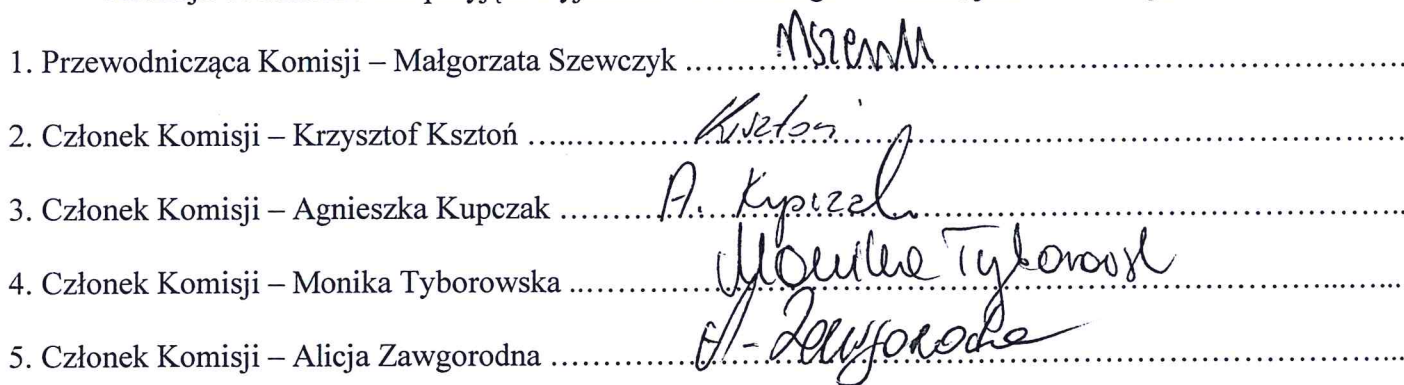 1. Przewodnicząca Komisji – Małgorzata Szewczyk ........
2. Członek Komisji – Krzysztof Ksztoń ........ Ksztoń
3. Członek Komisji – Agnieszka Kupczak ........ A. Kupczak
4. Członek Komisji – Monika Tyborowska ........ Monika Tyborowsk
5. Członek Komisji – Alicja Zawgorodna ........ A. Zawgorodna